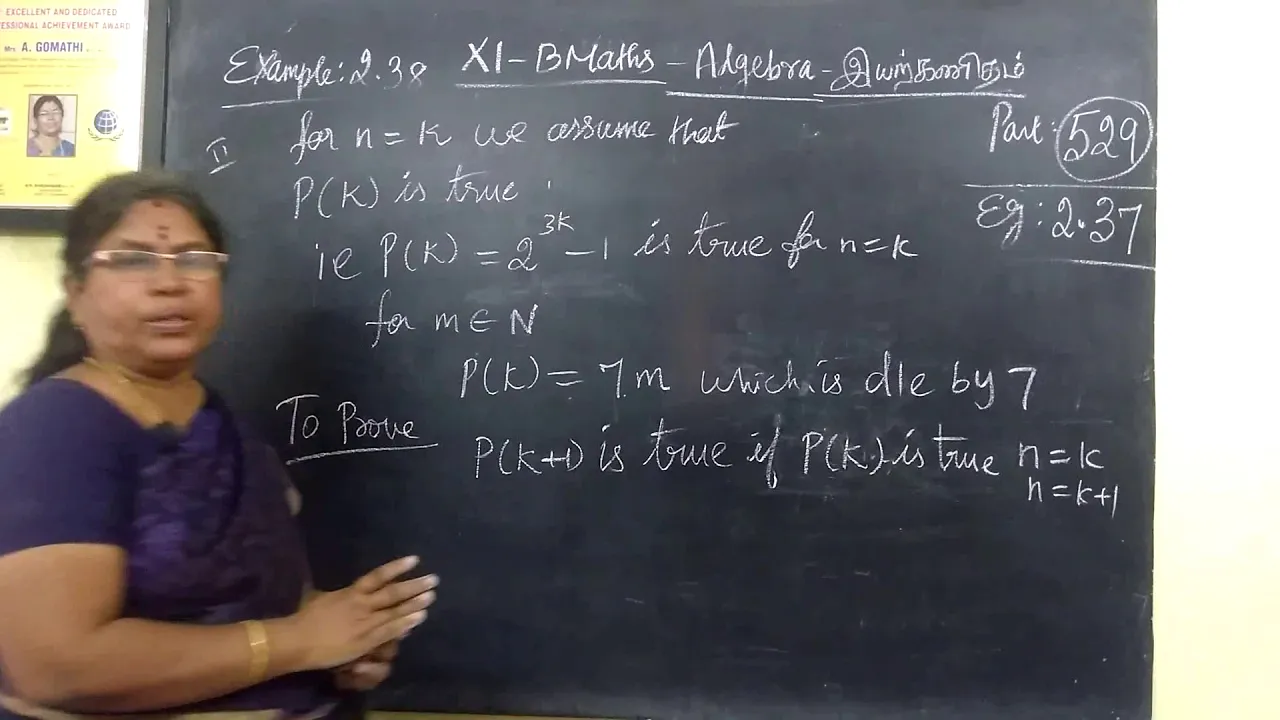 EXCELLENT AND DEDICATED
FESSIONAL ACHIEVEMENT AWARD
Mrs. A. GOMATHI
Example: 2.38 XI - BMaths - Algebra - இயற்கணிதம்
Part: 529
Eg: 2.37
II for n = k we assume that
P(k) is true
ie P(k) = 2^3k - 1 is true for n = k
for m ∈ N
P(k) = 7.m which is d/e by 7
To Prove
P(k+1) is true if P(k) is true n = k
n = k+1